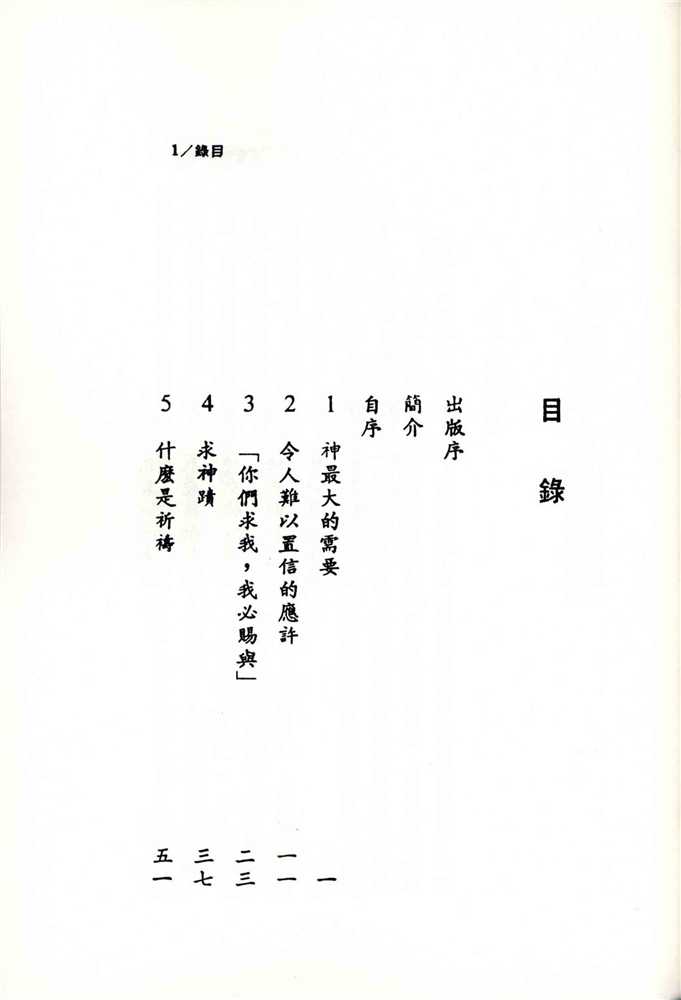 1／錄目
目錄
出版序
簡介
自序
1 神最大的需要 一
2 令人難以置信的應許 一一
3 「你們求我，我必賜與」 二三
4 求神蹟 三七
5 什麼是祈禱 五一